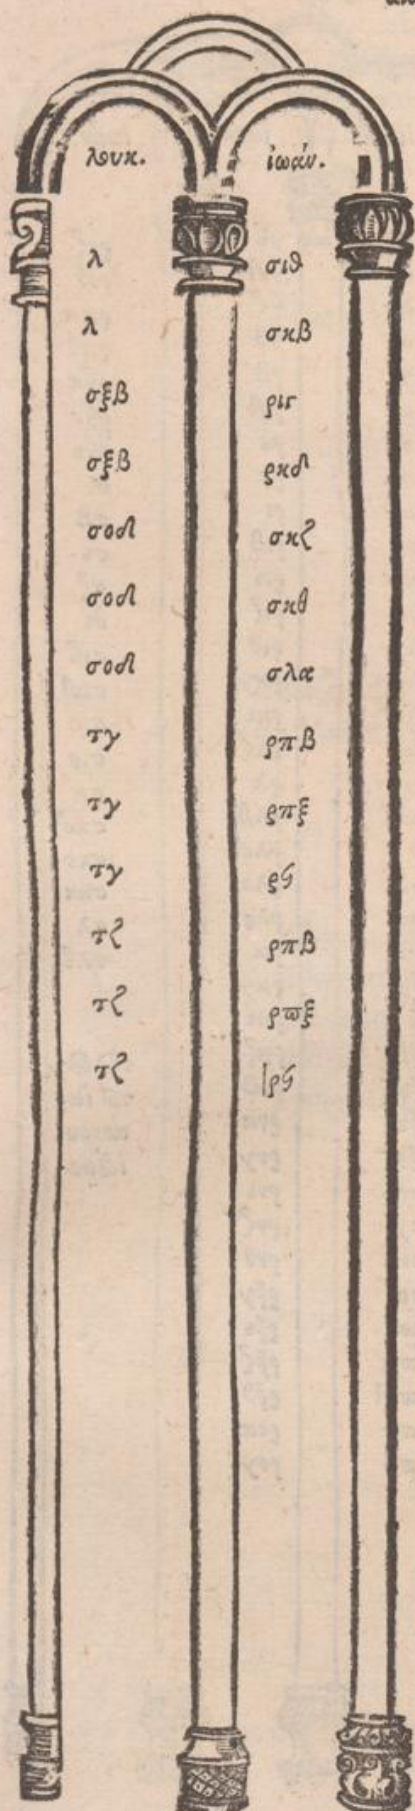 λουκ. ἰωάν.
λ σιθ
λ σκβ
σξβ ριγ
σξβ ρκδ
σοδ σκζ
σοδ σκθ
σοδ σλα
τγ ρπβ
τγ ρπξ
τγ ρϛ
τζ ρπβ
τζ ρϖξ
τζ ρϛ